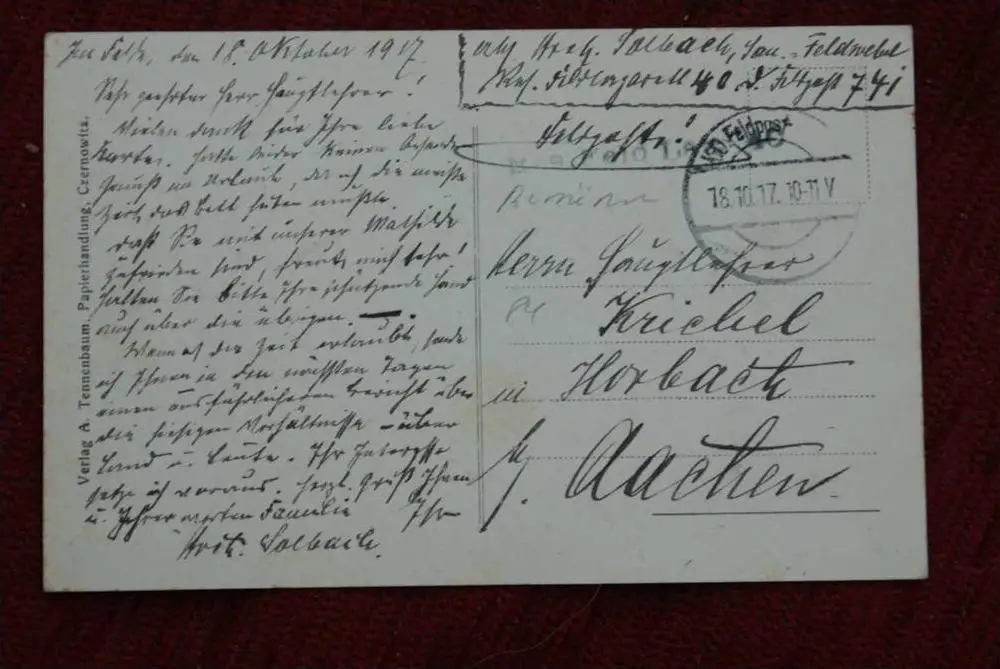 Im Felde, den 18. Oktober 1917.
Sehr geehrter Herr Hauptlehrer!
Vielen Dank für Ihre liebe
Karte. Hatte leider keinen
Genuß im Urlaub, da ich die meiste
Zeit das Bett hüten mußte.
Daß Sie mit unserer Mathilde
zufrieden sind, freut mich sehr!
Halten Sie bitte Ihre schützende Hand
auch über die übrigen. —
Wenn es die Zeit erlaubt, sende
ich Ihnen in den nächsten Tagen
einen ausführlicheren Bericht über
die hiesigen Verhältnisse – über
Land u. Leute. Ihr Interesse
setze ich voraus. Herzl. Gruß Ihnen
u. Ihrer werten Familie Ihr
Solbach.
Verlag A. Tennenbaum, Papierhandlung, Czernowitz.
Solbach, San.-Feldwebel
Feldlazarett 40 D. Feldpost 741
Feldpost!
Feldpost
18.10.17. 10-11 V
Herrn Hauptlehrer
Krichel
in Horbach
b. Aachen.